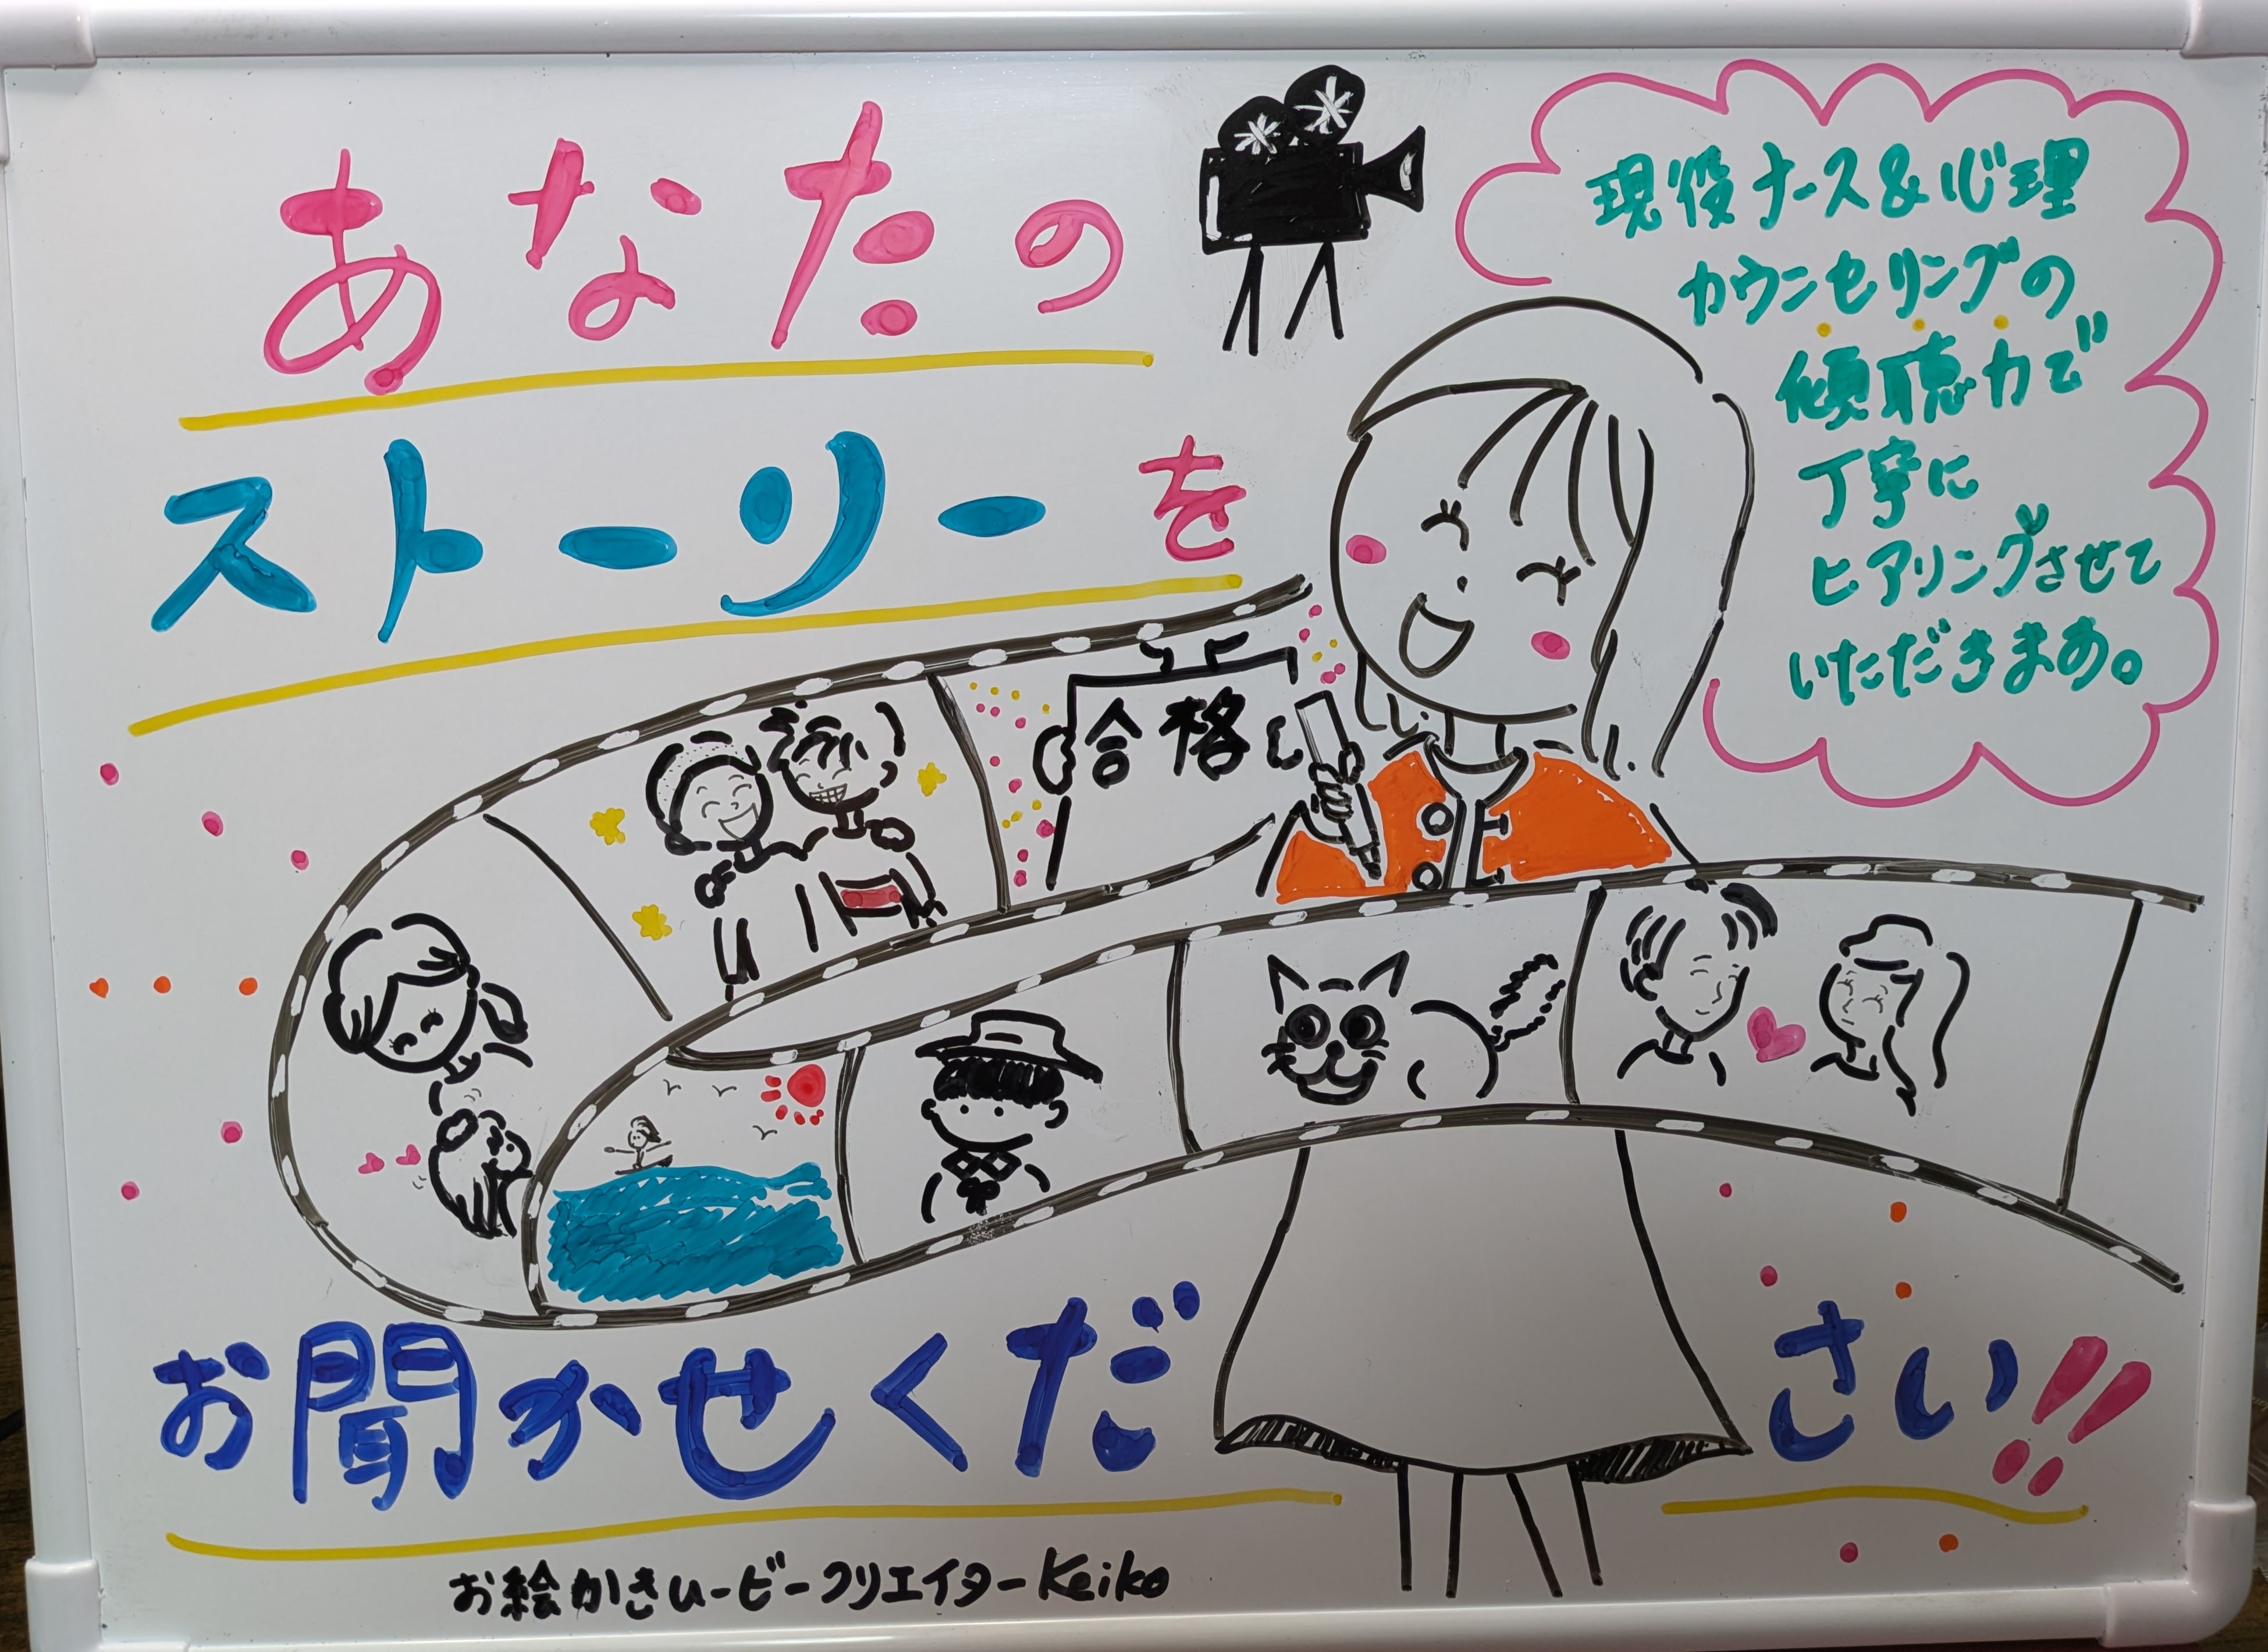 あなたの
ストーリーを
現役ナース&心理
カウンセリングの
傾聴力で
丁寧に
ヒアリングさせて
いただきます。
合格
お聞かせください!!
お絵かきムービークリエイターKeiko